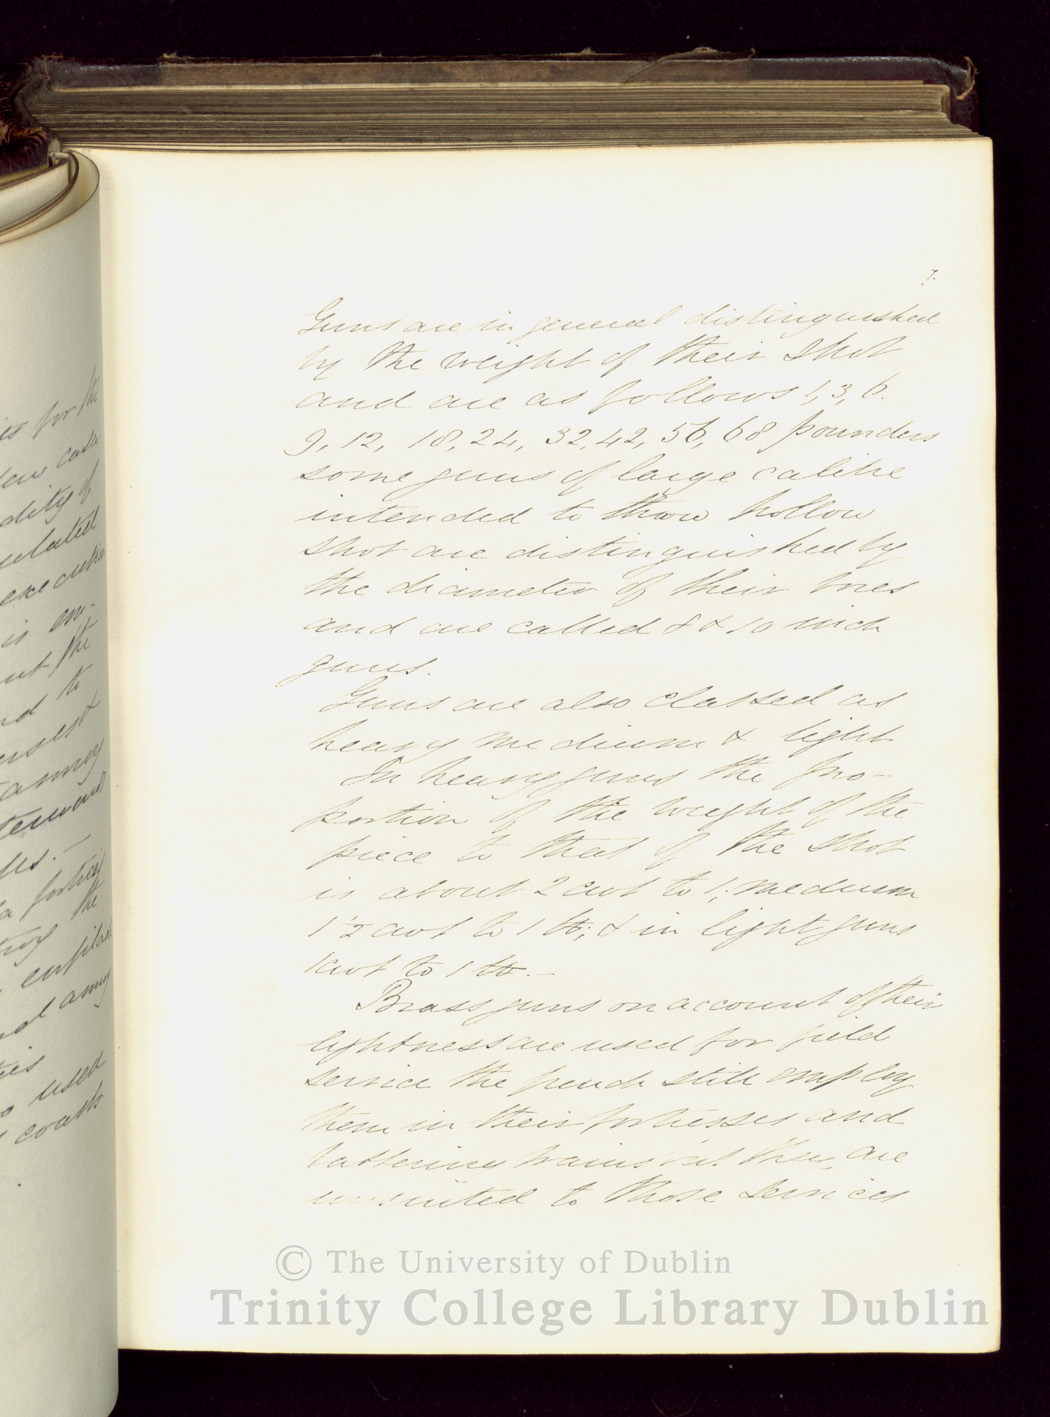 7.
Guns are in general distinguished
by the weight of their shot
and are as follows 1, 3, 6.
9, 12, 18, 24, 32, 42, 56, 68 pounders
some guns of large calibre
intended to throw hollow
shot are distinguished by
the diameter of their bores
and are called 8 & 10 inch
guns.
Guns are also classed as
heavy medium & light
In heavy guns the pro-
portion of the weight of the
piece to that of the shot
is about 2 cwt to 1; medium
1½ cwt to 1 lb; & in light guns
1 cwt to 1 lb. —
Brass guns on account of their
lightness are used for field
service the french still employ
them in their fortresses and
battering trains but they are
unsuited to those services
is for the
dity of
ulated
execution
is en-
ut the
nd to
annoy
the
enfilad
nd annoy
used
© The University of Dublin
Trinity College Library Dublin